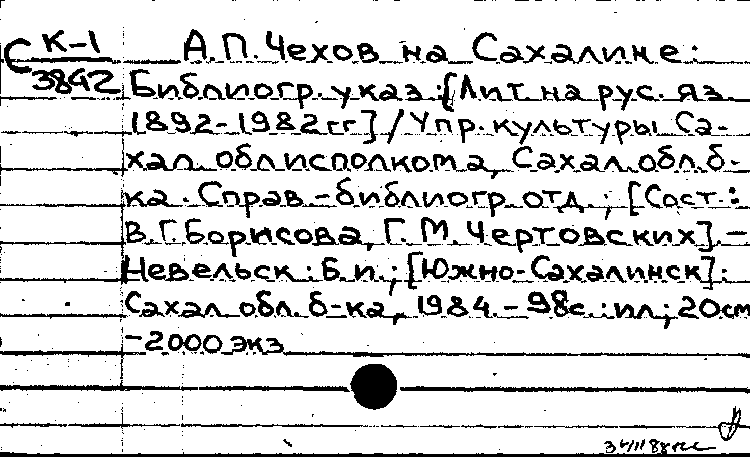 С К-1
3842
А.П. Чехов на Сахалине:
Библиогр. указ.: [Лит. на рус. яз.
1892-1982 гг.] / Упр. культуры Са-
хал. облисполкома, Сахал. обл. б-
ка. Справ.-библиогр. отд.; [Сост.:
В.Г. Борисова, Г.М. Чертовских]. -
Невельск: Б.и.; [Южно-Сахалинск]:
Сахал. обл. б-ка, 1984. - 98с.: ил; 20см
- 2000 экз